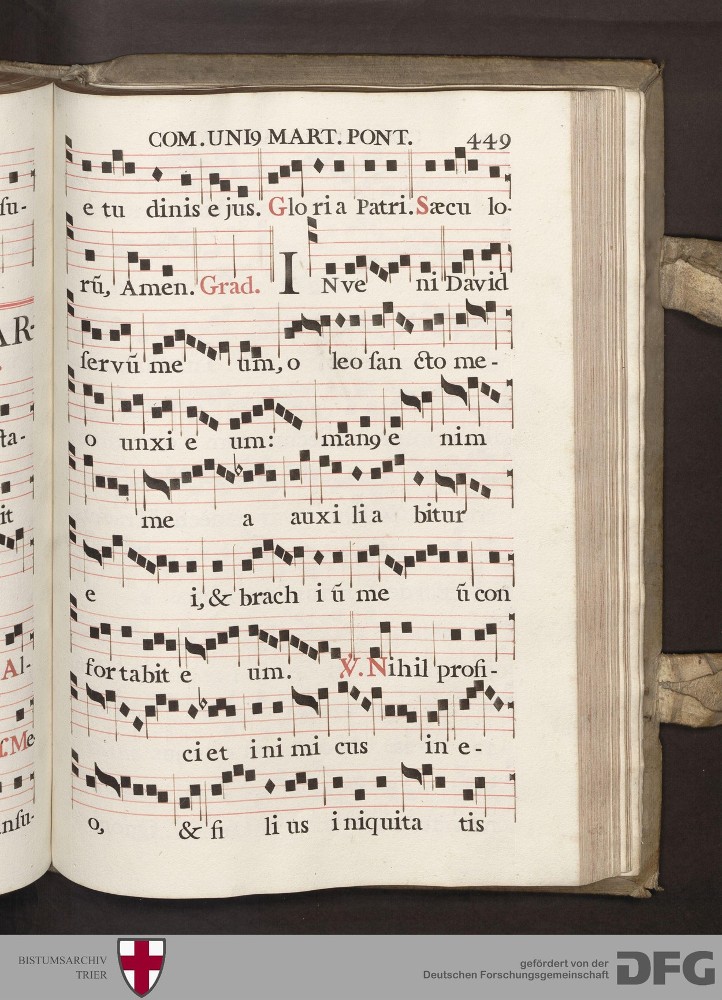 ſu-
AR-
ſta-
it
Al-
ſ. Me
inſu-
COM.UNI9 MART. PONT. 449
e tu dinis ejus. Glo ri a Patri. Sæcu lo-
rũ, Amen. Grad. I Nve ni David
ſervũ me um, o leo ſan cto me-
o unxi e um: man9 e nim
me a auxi li a bitur
e i, & brach i ũ me ũ con
for tabit e um. ℣. Nihil profi-
ci et ini mi cus in e-
o, & fi li us iniquita tis
BISTUMSARCHIV
TRIER
gefördert von der
Deutschen Forschungsgemeinschaft
DFG